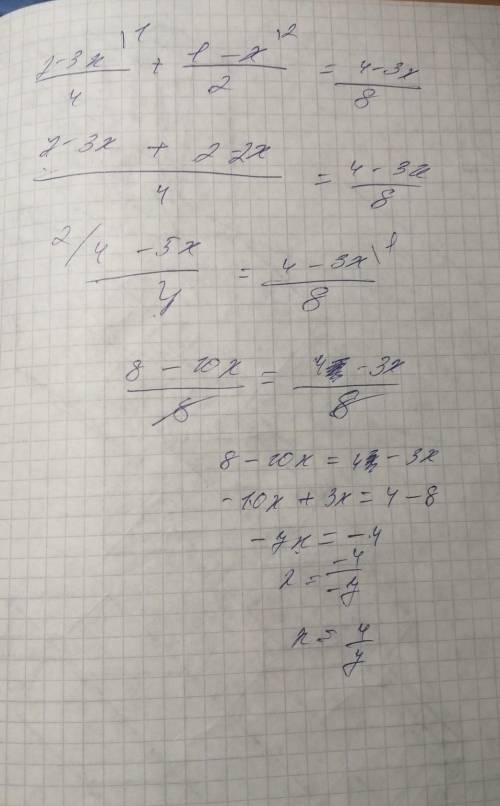 (2-3x\1)/4 + (1-x\2)/2 = (4-3x)/8
(2-3x + 2-2x)/4 = (4-3x)/8
2/ (4-5x)/4 = (4-3x\1)/8
(8-10x)/8 = (4-3x)/8
8-10x = 4-3x
-10x+3x = 4-8
-7x = -4
x = -4/-7
x = 4/7